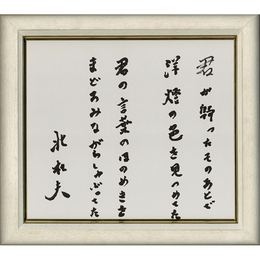 君が歸ったそのあとで
洋燈の色を見つめてた
君の言葉のほのめきを
まどろみながらしゃぶってた